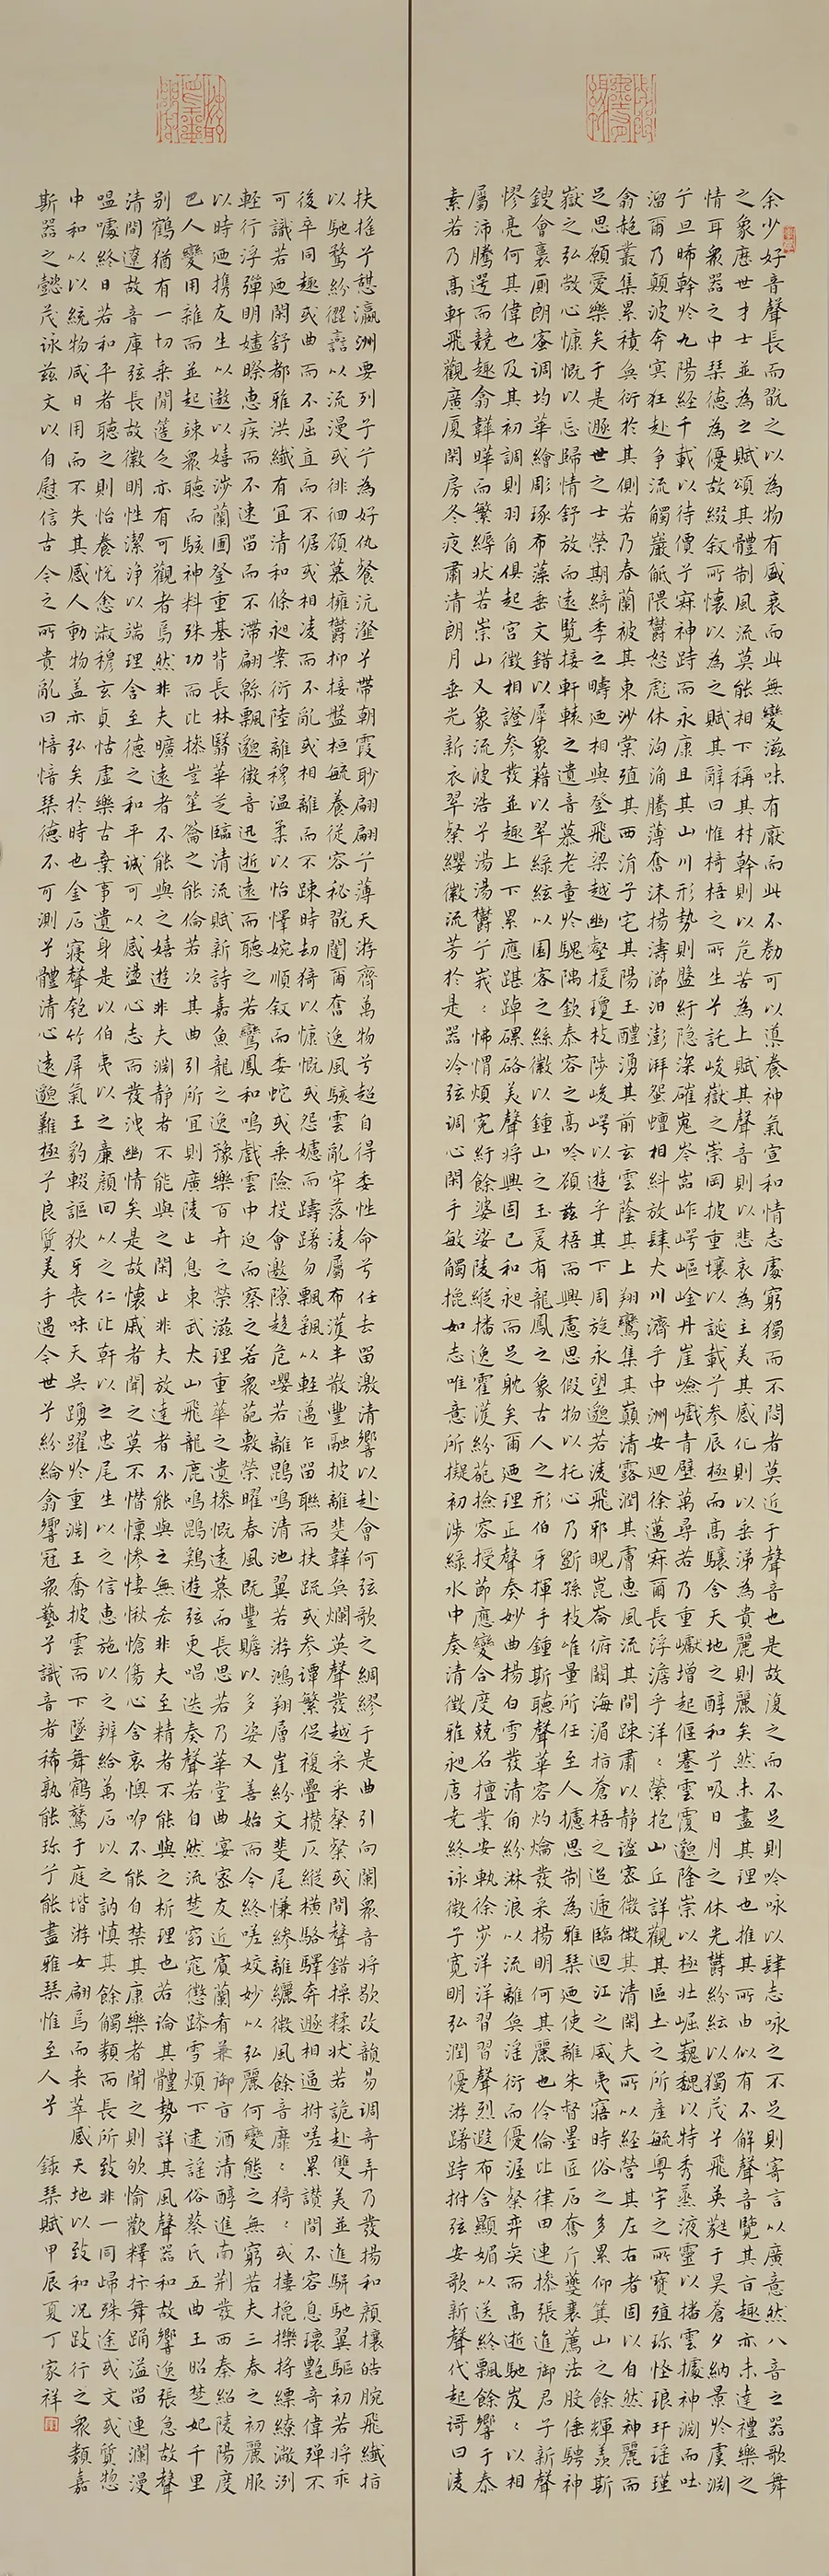 余少好音聲長而翫之以為物有盛衰而此無變滋味有厭而此不勌可以導養神氣宣和情志處窮獨而不悶者莫近于聲音也是故復之而不足則吟咏以肆志咏之不足則寄言以廣意然八音之器歌舞
之象歷世才士並為之賦頌其體制風流莫能相下稱其材幹則以危苦為上賦其聲音則以悲哀為主美其感化則以垂涕為貴麗則麗矣然未盡其理也推其所由似有不解聲音覽其旨趣亦未達禮樂之
情耳衆器之中琴德為優故綴叙所懷以為之賦其辭曰惟椅梧之所生兮託峻嶽之崇岡披重壤以誕載兮參辰極而高驤含天地之醇和兮吸日月之休光欝紛紜以獨茂兮飛英蕤于昊蒼夕納景於虞淵
兮旦晞幹於九陽経千載以待價兮寂神跱而永康且其山川形勢則盤紆隐深磪嵬岑嵓岞崿嶇崟丹崖嶮巇青壁萬尋若乃重巘增起偃蹇雲覆邈隆崇以極壯崛巍巍以特秀蒸液靈以播雲據神淵而吐
溜爾乃顛波奔突狂赴爭流觸巖觝隈欝怒彪休洶涌騰薄奮沫揚濤瀄汩澎湃蜿蟺相糾放肆大川濟乎中洲安迴徐邁寂爾長浮澹乎洋〻縈抱山丘詳觀其區土之所產毓奧宇之所寶殖珍怪琅玕瑶瑾
翕赩叢集累積奐衍於其側若乃春蘭被其東沙棠殖其西涓子宅其陽玉醴湧其前玄雲蔭其上翔鸞集其巔清露潤其膚惠風流其間竦肅以静謐密微微其清閑夫所以経營其左右者固以自然神麗而
足思願愛樂矣于是遯世之士榮期綺季之疇迺相與登飛梁越幽壑援瓊枝陟峻崿以遊乎其下周旋永望邈若凌飛邪睨崑崙俯闞海湄指蒼梧之迢遞臨迴江之威夷寤時俗之多累仰箕山之餘輝羨斯
嶽之弘敞心慷慨以忘歸情舒放而遠覽接軒轅之遺音慕老童於騩隅欽泰容之高吟顧茲梧而興慮思假物以托心乃斵孫枝准量所任至人攄思制為雅琴迺使離朱督墨匠石奮斤夔襄薦法般倕騁神
鎪會裛厠朗密调均華繪彫琢布藻垂文錯以犀象藉以翠綠絃以園客之絲徽以鍾山之玉爰有龍鳳之象古人之形伯牙揮手鍾期聽聲華容灼爚發采揚明何其麗也伶倫比律田連操張進御君子新聲
憀亮何其偉也及其初調則羽角俱起宮徵相證參發並趣上下累應踸踔磥硌美聲將興固已和昶而足躭矣爾迺理正聲奏妙曲揚白雪發清角紛淋浪以流離奐淫衍而優渥粲弈奕而高逝馳岌〻以相
屬沛騰遌而競趣翕韡曄而繁縟狀若崇山又象流波浩兮湯湯欝兮峩〻怫愲煩冤紆餘婆娑陵縱播逸霍濩紛葩撿容授節應變合度兢名擅業安軌徐步洋洋習習聲烈遐布含顯媚以送終飄餘響于泰
素若乃高軒飛觀廣厦閑房冬夜肅清朗月垂光新衣翠粲纓徽流芳於是器冷弦调心閑手敏觸㧙如志唯意所擬初涉綠水中奏清徵雅昶唐堯終詠微子寬明弘潤優游躇跱拊弦安歌新聲代起謌曰淩
扶搖兮憩瀛洲要列子兮為好仇餐沆瀣兮帶朝霞眇翩翩兮薄天游齊萬物兮超自得委性命兮任去留激清響以赴會何弦歌之綢繆于是曲引向闌衆音將歇改韻易调奇弄乃發揚和顏攘皓腕飛纖指
以馳騖紛㒊譶以流漫或徘徊顧慕擁欝抑按盤桓毓養從容秘翫闥爾奮逸風駭雲亂牢落淩厲布濩半散豐融披離斐韡奐爛英聲發越采采粲粲或間聲錯糅狀若詭赴雙美並進駢馳翼驅初若將乖
後卒同趣或曲而不屈直而不倨或相凌而不亂或相離而不踈時劫掎以慷慨或怨㜘而躊躇忽飄飖以輕邁乍留聯而扶疏或參譚繁促複疊攢仄縱橫駱驛奔遯相逼拊嗟累讚間不容息瓌艷奇偉殫不
可識若迺閑舒都雅洪纖有宜清和條昶案衍陸離穆温柔以怡懌婉順叙而委蛇或乘險投會邀隙趍危嚶若離鵾鳴清池翼若游鴻翔層崖紛文斐尾慊縿離纚微風餘音靡〻猗〻或摟㧙擽捋縹繚潎洌
輕行浮彈明嫿睽惠疾而不速留而不滯翩緜飄邈微音迅逝遠而聽之若鸞鳳和鳴戲雲中迫而察之若衆葩敷榮曜春風既豐贍以多姿又善始而令終嗟姣妙以弘麗何變態之無窮若夫三春之初麗服
以時迺携友生以遨以嬉涉蘭圃登重基背長林翳華芝臨清流賦新詩嘉魚龍之逸豫樂百卉之榮滋理重華之遺操慨遠慕而長思若乃華堂曲宴密友近賓蘭肴兼御旨酒清醇進南荆發西秦紹陵陽度
巴人變用雜而並起竦衆聽而駭神料殊功而比操豈笙籥之能倫若次其曲引所宜則廣陵止息東武太山飛龍鹿鳴鵾鷄遊弦更唱迭奏聲若自然流楚窈窕懲躁雪煩下逮謡俗蔡氏五曲王昭楚妃千里
别鶴猶有一切承閒簉乏亦有可觀者焉然非夫曠遠者不能與之嬉遊非夫淵靜者不能與之閑止非夫放達者不能與之無𠫤非夫至精者不能與之析理也若論其體勢詳其風聲器和故響逸張急故聲
清間遼故音庳弦長故徽明性潔淨以端理含至德之和平誠可以感盪心志而發洩幽情矣是故懷戚者聞之莫不憯懍惨悽愀愴傷心含哀懊咿不能自禁其康樂者聞之則欨愉歡釋抃舞踊溢留連瀾漫
嗢噱終日若和平者聽之則怡養悅悆淑穆玄真恬虛樂古棄事遺身是以伯夷以之廉顏回以之仁比干以之忠尾生以之信惠施以之辨給萬石以之訥慎其餘觸類而長所致非一同歸殊途或文或質惣
中和以以統物咸日用而不失其感人動物盖亦弘矣於時也金石寢聲匏竹屏氣王豹輟謳狄牙喪味天吳踴躍於重淵王喬披雲而下墜舞鸑鷟于庭堦游女飄焉而来萃感天地以致和况跂行之衆類嘉
斯器之懿茂詠茲文以自慰信古今之所貴亂曰愔愔琴德不可測兮體清心遠邈難極兮良質美手遇今世兮紛綸翕響冠衆藝兮識音者稀孰能珍兮能盡雅琴惟至人兮 錄琴賦甲辰夏丁家祥